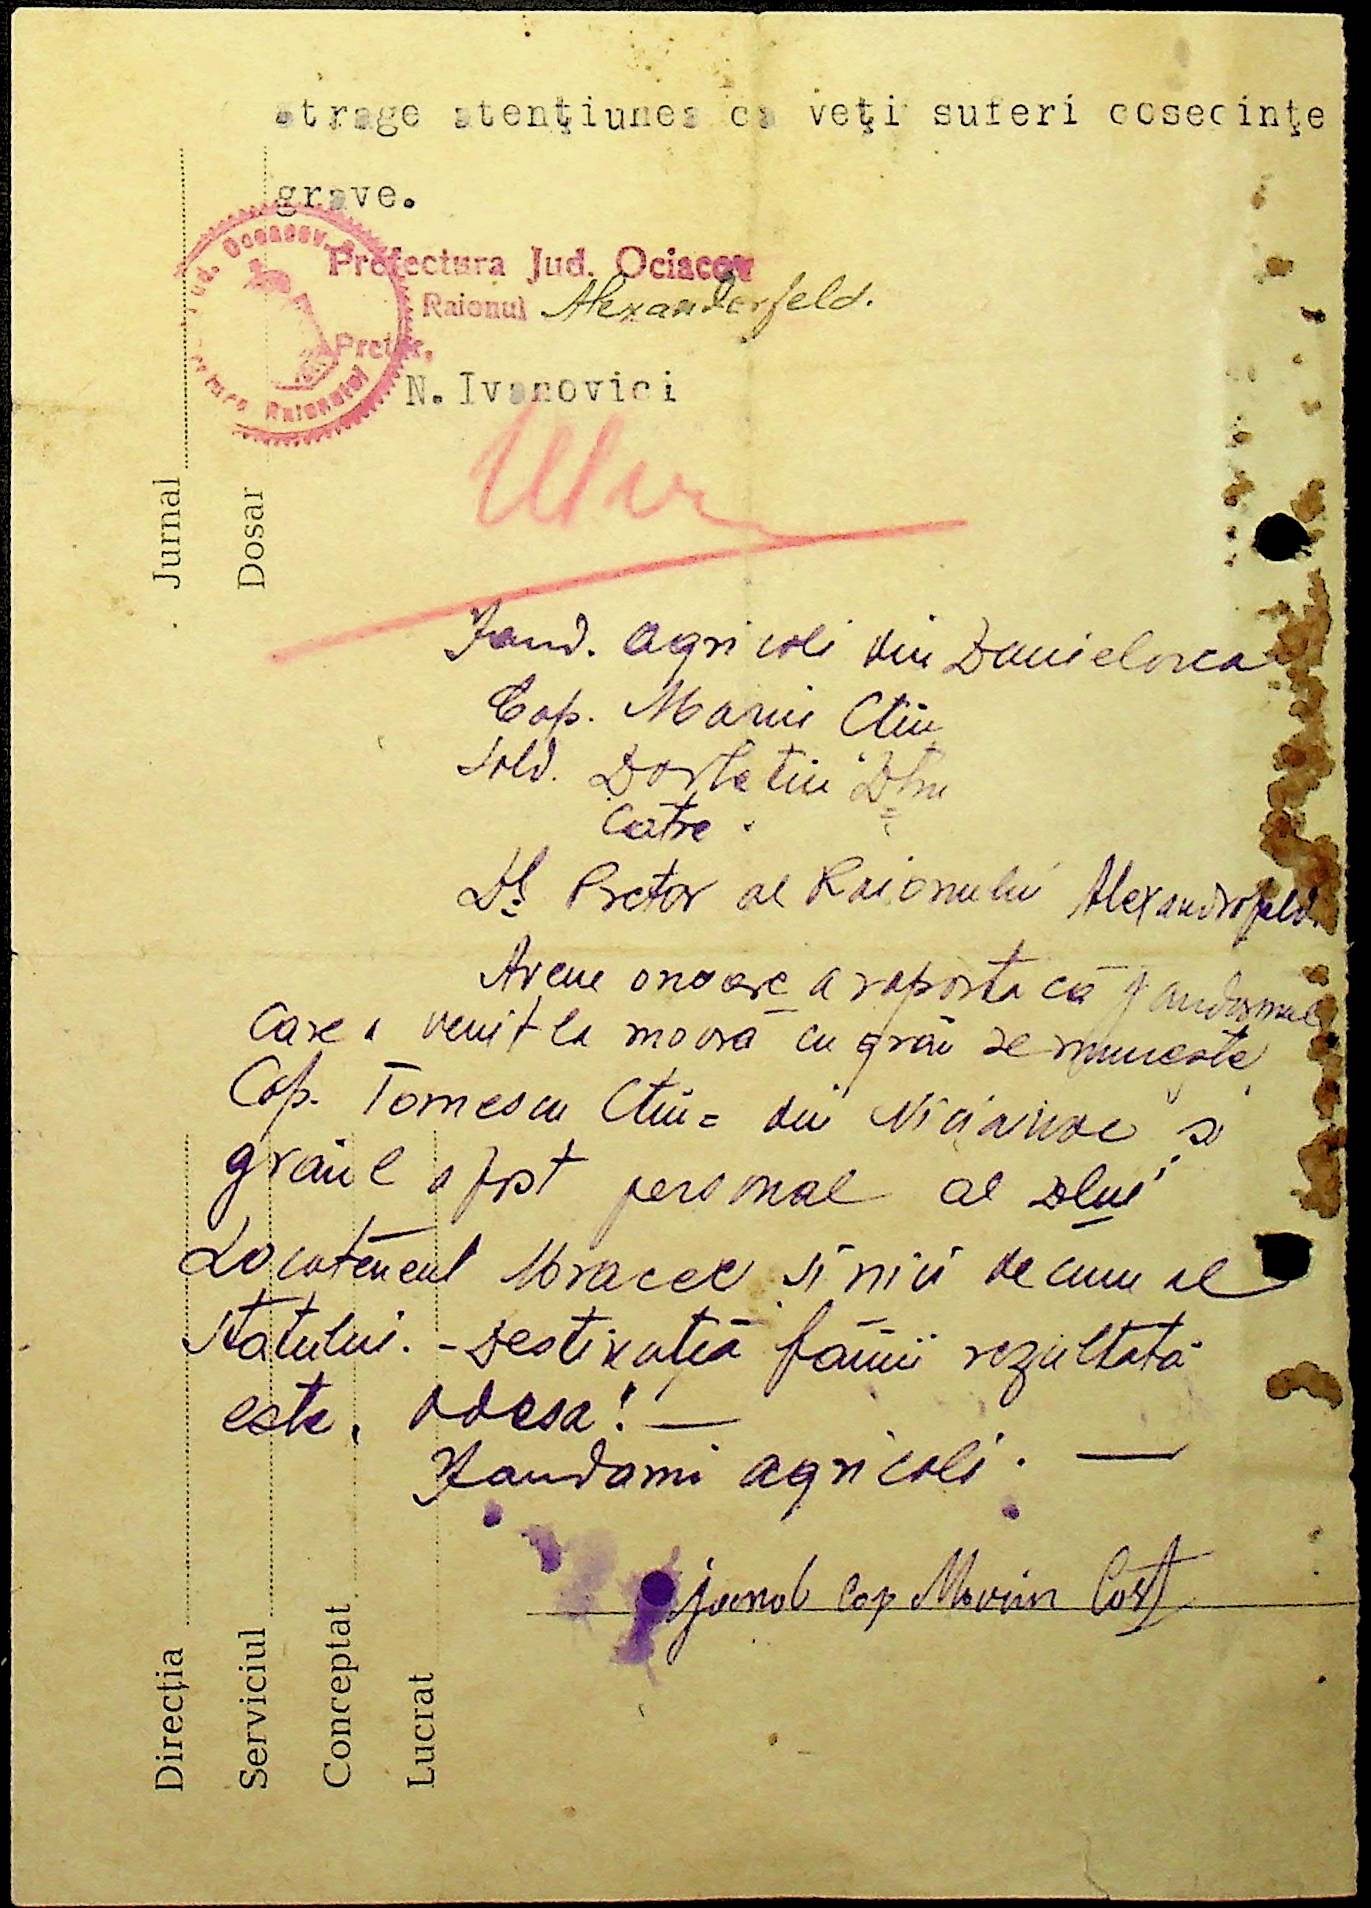 atrage atenţiunea ca veţi suferi cosecinţe
grave.
Prefectura Jud. Ociacov
Raionul Alexanderfeld.
Pretor,
N. Ivanovici
Jurnal
Dosar
Jand. agricoli din Danielovca
Cap. Marin Ctin
Sold. Dtru
Catre
Dl. Pretor al Raionului Alexandrofeld.
Avem onoare a raporta că jandarmul
care a venit la moară cu grâu se numeşte
Cap. Tomescu Ctin= din si
grâul a fost personal al Dlui
Locotenent şi nici decum al
Statului. - Destinaţia făinii rezultată
este. Odesa! —
Jandami agricoli. —
jand Cap Marin Cost
Direcţia
Serviciul
Conceptat
Lucrat